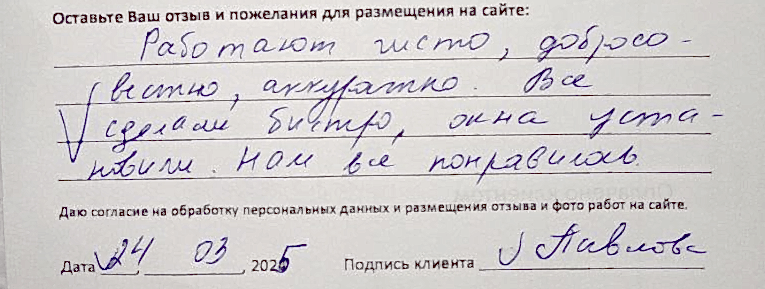 Оставьте Ваш отзыв и пожелания для размещения на сайте:
Работают чисто, добросо-
вестно, аккуратно. Все
сделали быстро, окна уста-
новили. Нам все понравилось.
Даю согласие на обработку персональных данных и размещения отзыва и фото работ на сайте.
Дата 24 03 2025 Подпись клиента Павлова